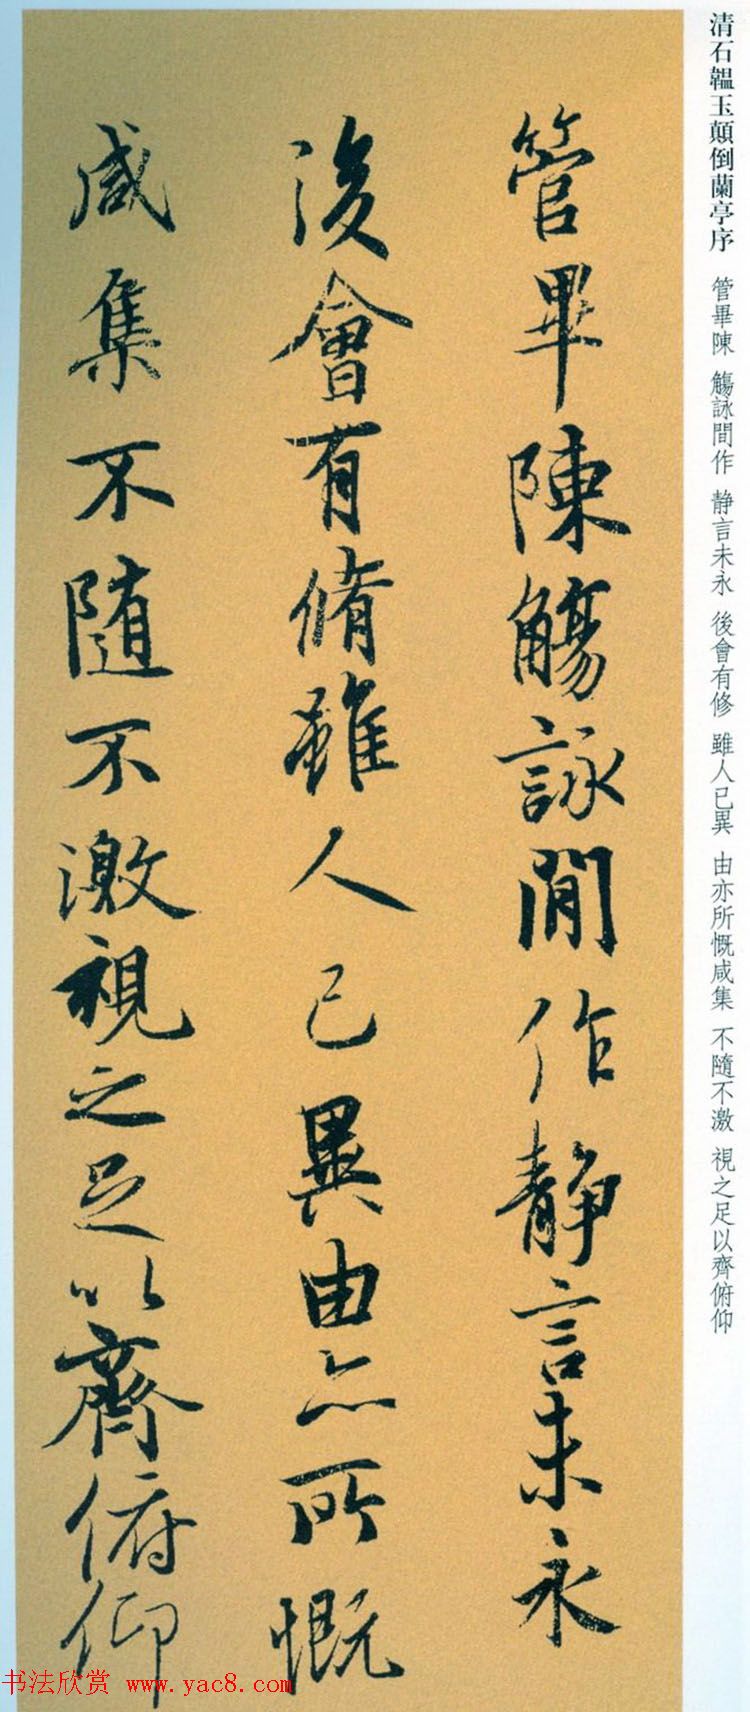 清石韞玉顛倒蘭亭序 管畢陳 觴詠間作 静言未永 後會有修 雖人已異 由亦所慨咸集 不隨不激 視之足以齊俯仰
管畢陳觴詠閒作静言未永
後會有脩雖人已異由亦所慨
咸集不随不激視之足以齊俯仰
书法欣赏 www.yac8.com